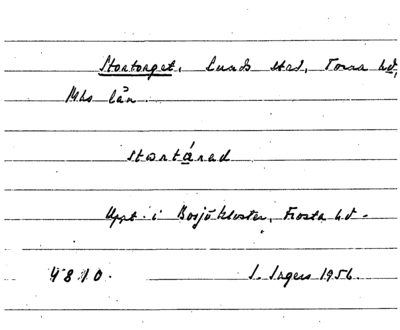 Stortorget, Lunds stad, Torna hd,
Mhs län.
stortárəd
Uppt. i Bosjökloster, Frosta hd.
4810. I. Ingers 1956.